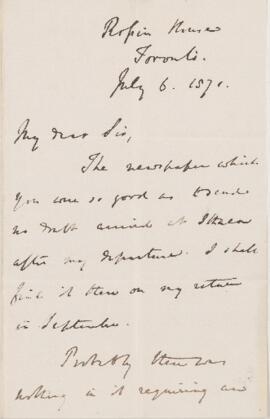 Rossin House
Toronto.
July 6. 1871.
My dear Sir,
The newspaper which
you were so good as to send
no doubt arrived at Ithaca
after my departure. I shall
find it there on my return
in September.
Probably there was
nothing in it requiring an